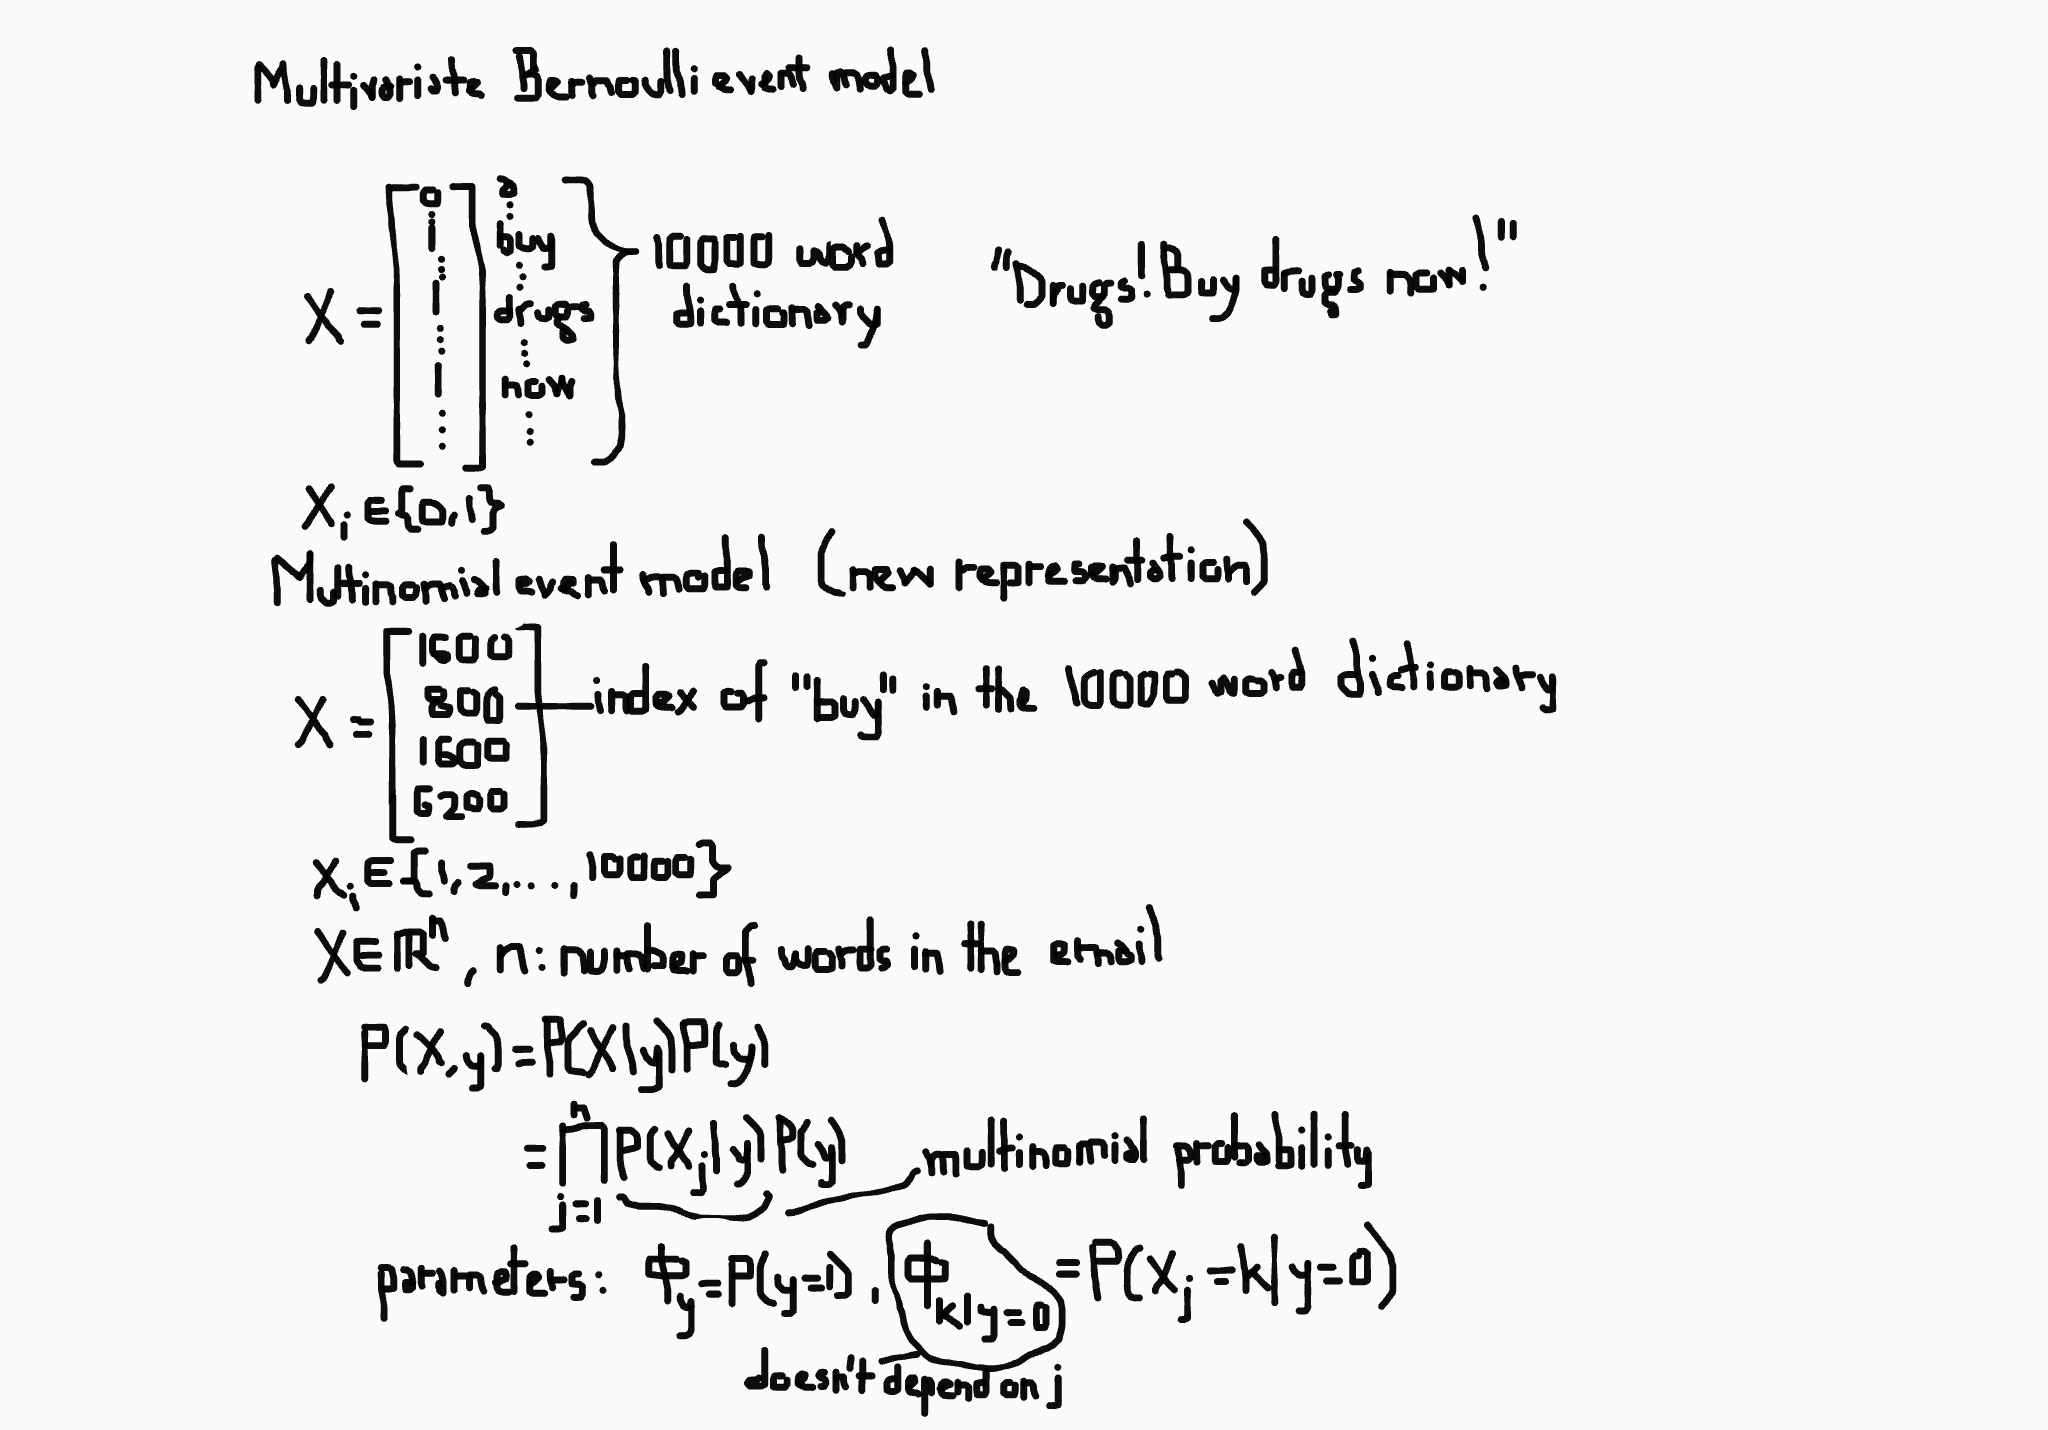 Multivariate Bernoulli event model
X = [0 ⋮ 1 ⋮ 1 ⋮ 1 ⋮] a ⋮ buy ⋮ drugs ⋮ now ⋮ } 10000 word dictionary "Drugs! Buy drugs now!"
X_i ∈ {0,1}
Multinomial event model (new representation)
X = [1600 800 1600 6200] — index of "buy" in the 10000 word dictionary
X_i ∈ {1,2,...,10000}
X ∈ ℝ^n, n: number of words in the email
P(X,y) = P(X|y)P(y)
= ∏_{j=1}^{n} P(X_j|y) P(y) multinomial probability
parameters: Φ_y = P(y=1), Φ_{k|y=0} = P(X_j = k|y=0)
doesn't depend on j